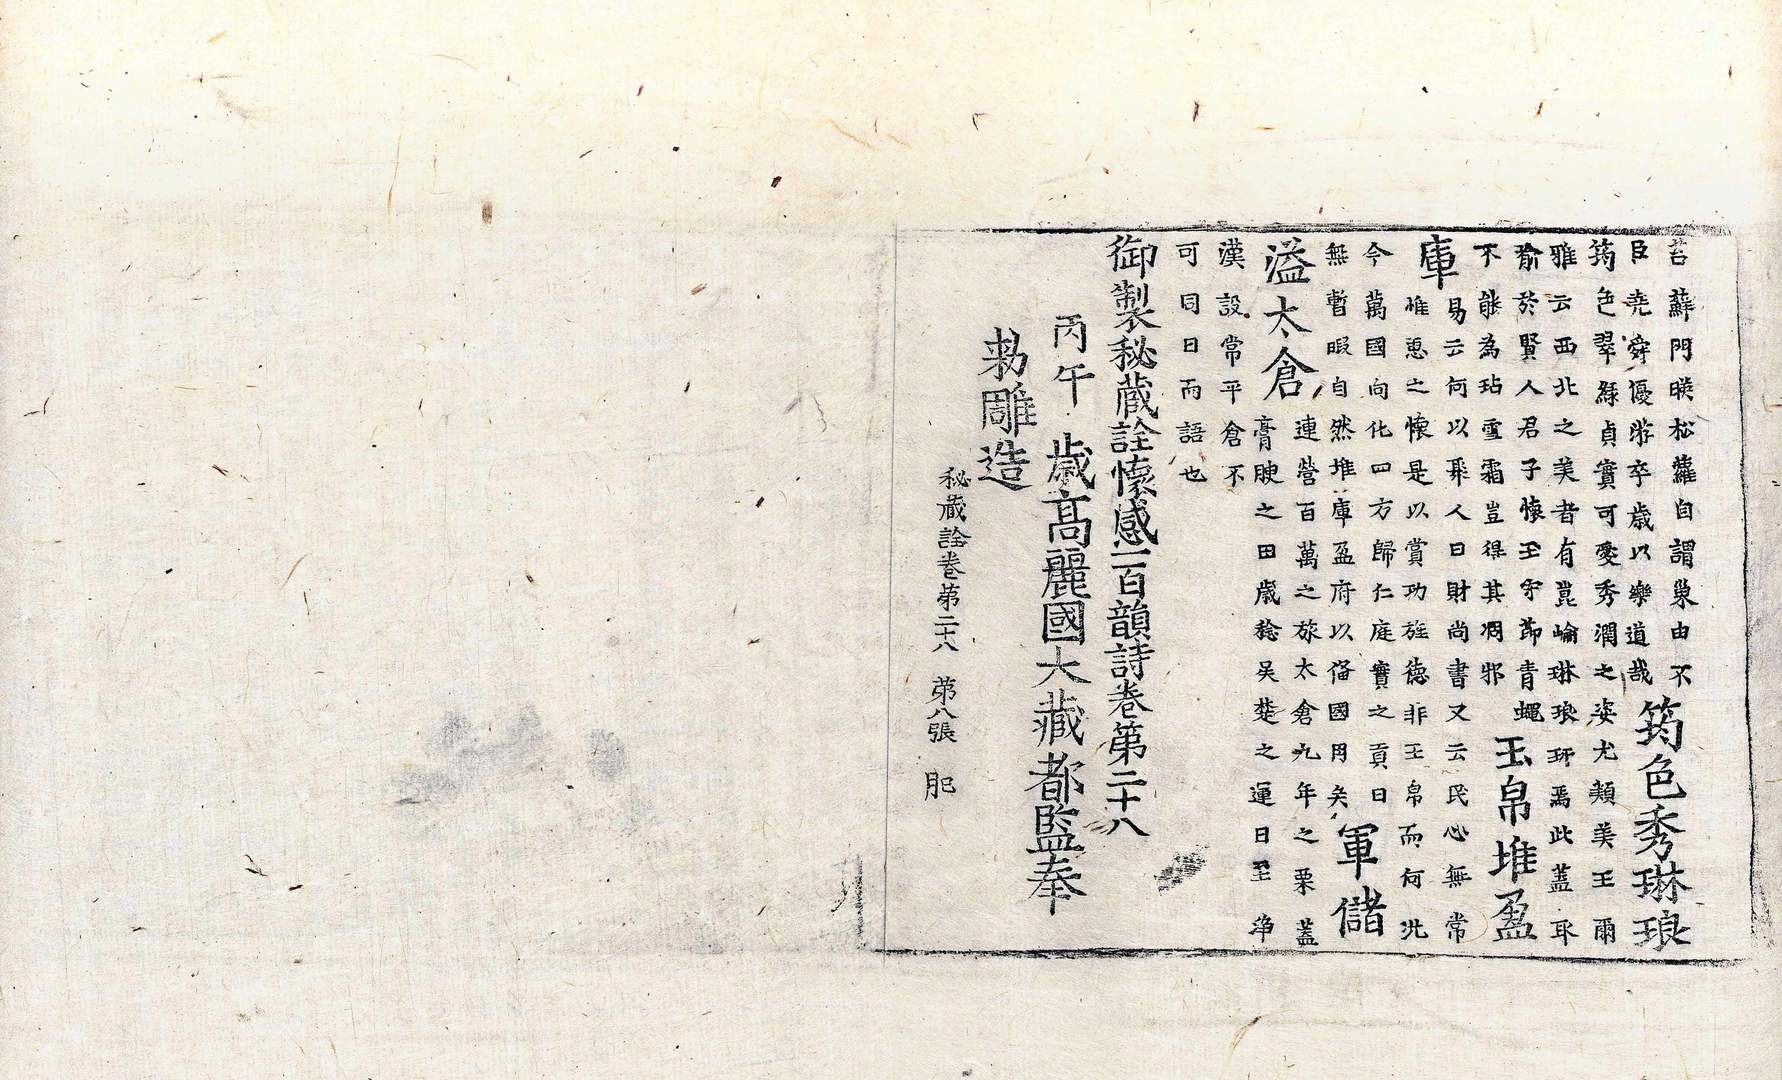 苔蘚門暎松蘿自謂巢由不
臣堯舜優游卒歲以樂道哉
筠色秀琳琅
筠色翠綠貞實可愛秀潤之姿尤類美玉爾
雅云西北之美者有崑崘琳琅玕焉此蓋取
喻於賢人君子懷玉守節青蠅
不能為玷雪霜豈得其凋邪
玉帛堆盈
庫
易云何以聚人曰財尚書又云民心無常
惟惠之懷是以賞功旌德非玉帛而何況
今萬國向化四方歸仁庭實之貢日
無暫暇自然堆庫盈府以俻國用矣
軍儲
溢太倉
連營百萬之旅太倉九年之粟蓋
膏腴之田歲稔吳楚之運日至
漢設常平倉不
可同日而語也
御製秘藏詮懷感一百韻詩卷第二十八
丙午歲高麗國大藏都監奉
勑雕造
秘藏詮卷第二十八 第八張 肥